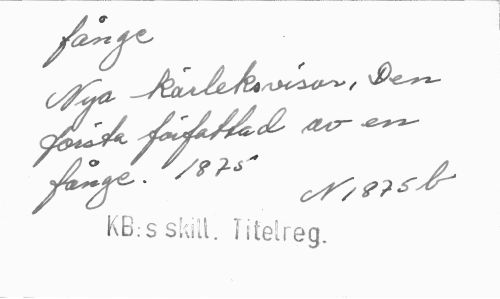 fånge
Nya kärleksvisor, Den
första författad av en
fånge. 1875
N 1875 b
KB:s skill. Titelreg.